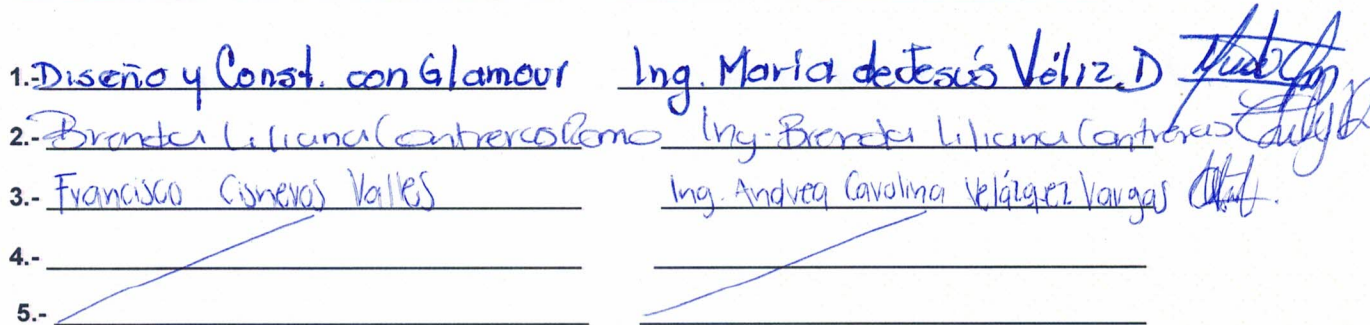 1.- Diseño y Const. con Glamour Ing. María de Jesús Véliz D
2.- Brenda Liliana Contreras Ing. Brenda Liliana Contreras
3.- Francisco Cisneros Valles Ing. Andrea Carolina Velázquez Vargas
4.-
5.-